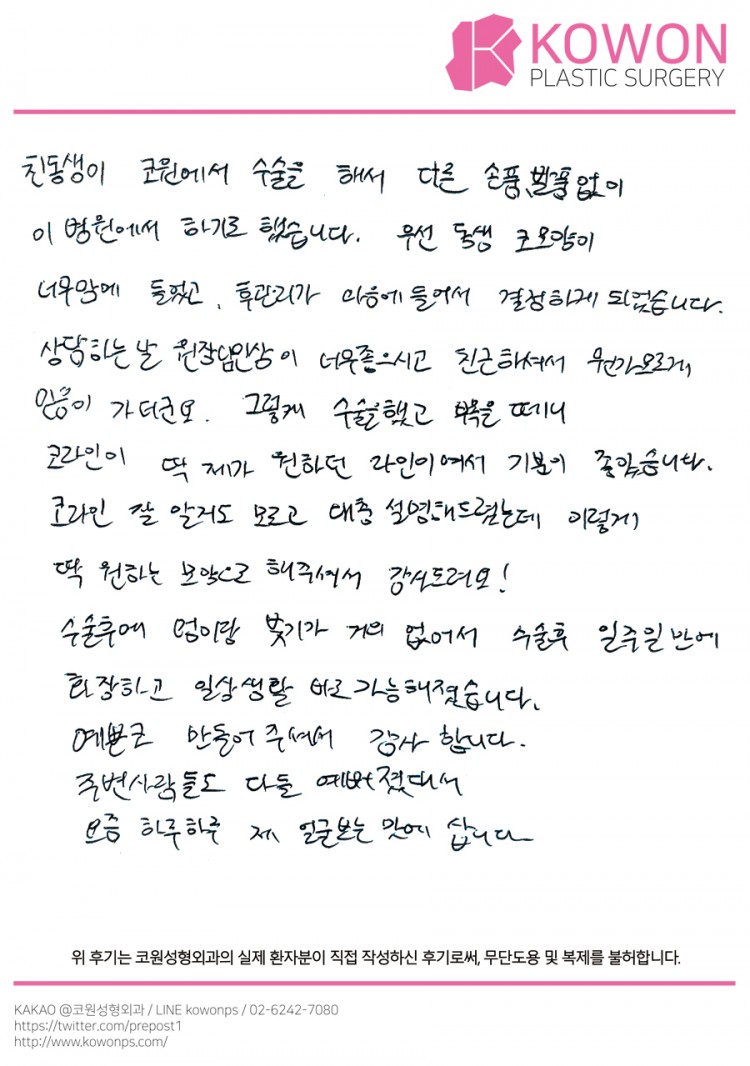 KOWON
PLASTIC SURGERY
친동생이 코원에서 수술을 해서 다른 손품, 발품 없이
이 병원에서 하기로 했습니다. 우선 동생 코모양이
너무맘에 들었고, 후관리가 마음에 들어서 결정하게 되었습니다.
상담하는 날 원장님인상이 너무좋으시고 친근하셔서 뭔가모르게
믿음이 가더군요. 그렇게 수술을 했고 부목을 떼니
코라인이 딱 제가 원하던 라인이여서 기분이 좋았습니다.
코라인 잘 알지도 모르고 대충 설명해드렸는데 이렇게
딱 원하는 모양으로 해주셔서 감사드려요!
수술후에 멍이랑 붓기가 거의 없어서 수술후 일주일만에
화장하고 일상생활 바로가능해졌습니다.
예쁜코 만들어 주셔서 감사 합니다.
주변사람들도 다들 예뻐졌대서
요즘 하루하루 제 얼굴보는 맛에 삽니다
위 후기는 코원성형외과의 실제 환자분이 직접 작성하신 후기로써, 무단도용 및 복제를 불허합니다.
KAKAO @코원성형외과 / LINE kowonps / 02-6242-7080
https://twitter.com/prepost1
http://www.kowonps.com/